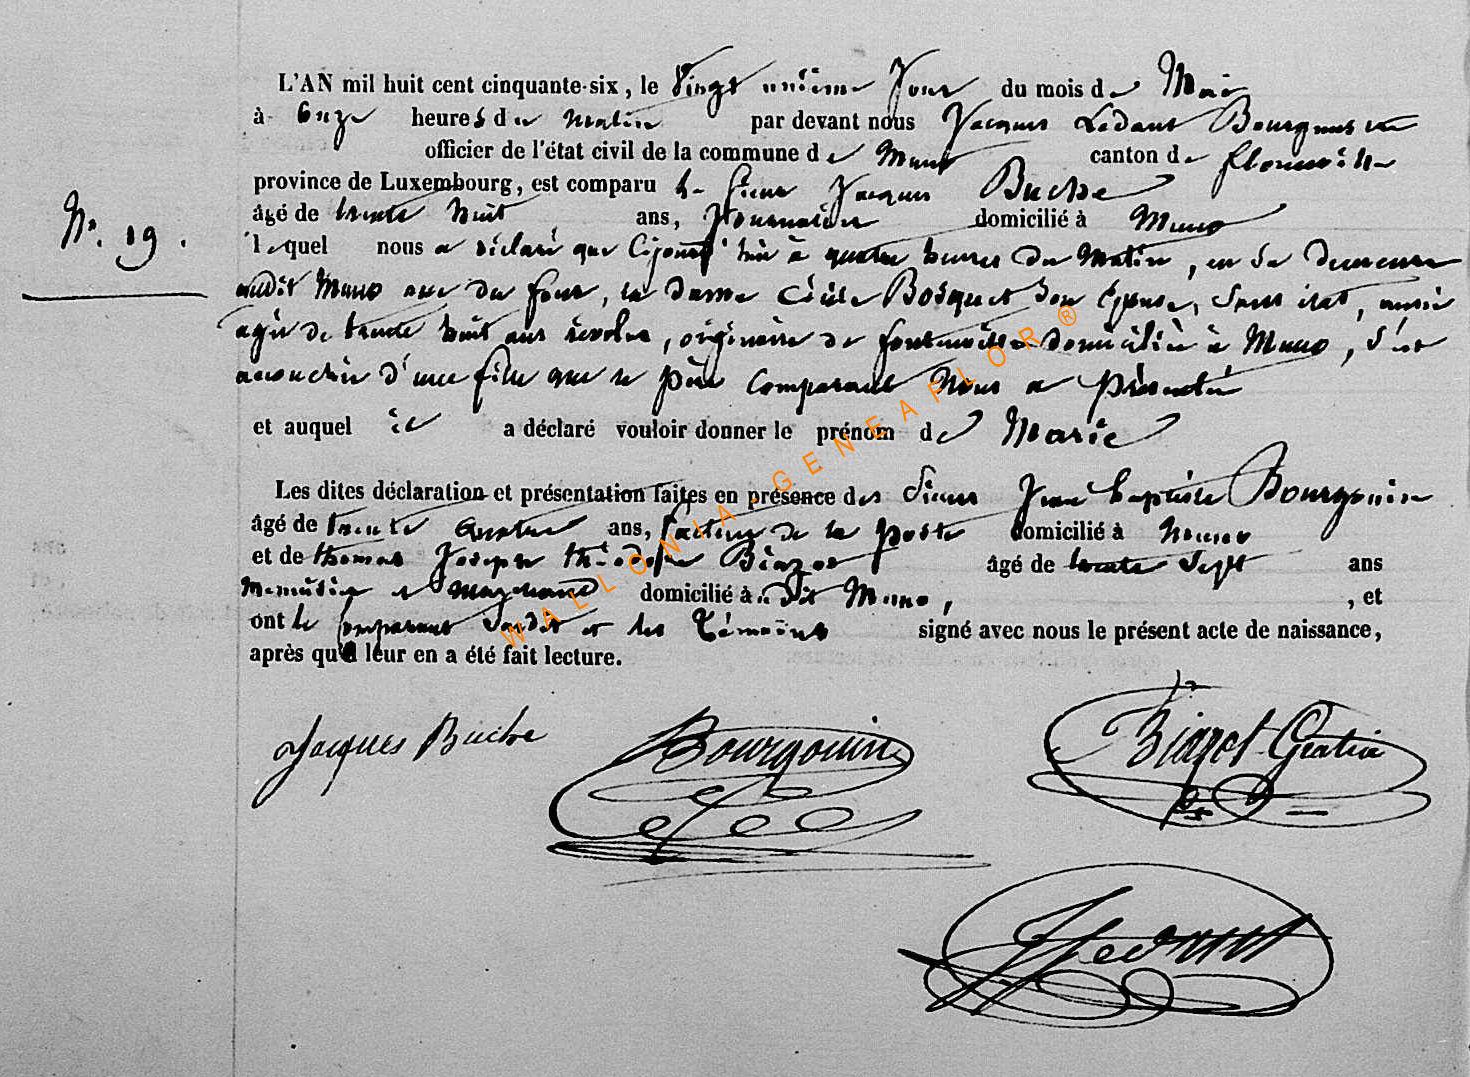 L'AN mil huit cent cinquante-six, le Vingt unième Jour du mois de Mai
à Onze heures du Matin par devant nous Jacques Ledant Bourgmestre
officier de l'état civil de la commune de Muno canton de florenville
province de Luxembourg, est comparu le Sieur Jacques Buche
âgé de trente huit ans, Journalier domicilié à Muno
N°. 19.
lequel nous a déclaré que Cejourd'hui à quatre heures du Matin, en Sa demeure
audit Muno rue du four, la dame Cécile Bosquet Son Epouse, Sans état, aussi
agée de trente huit ans révolus, originaire de fontenoille domiciliée à Muno, S'est
accouchée d'une fille que le père Comparant Nous a présentée
et auquel il a déclaré vouloir donner le prénom de Marie
Les dites déclaration et présentation faites en présence des Sieurs Jean baptiste Bourgouin
âgé de trente quatre ans, facteur de la poste domicilié à Muno
et de thomas Joseph théodore Biazot âgé de trente Sept ans
Menuisier et Marchand domicilié à dit Muno, , et
ont le Comparant Susdit et les Témoins signé avec nous le présent acte de naissance,
après qu'il leur en a été fait lecture.
WALLONIA-GENEAFLOR®
Jacques Buche Bourgouin Biazot-Gratia
JLedant